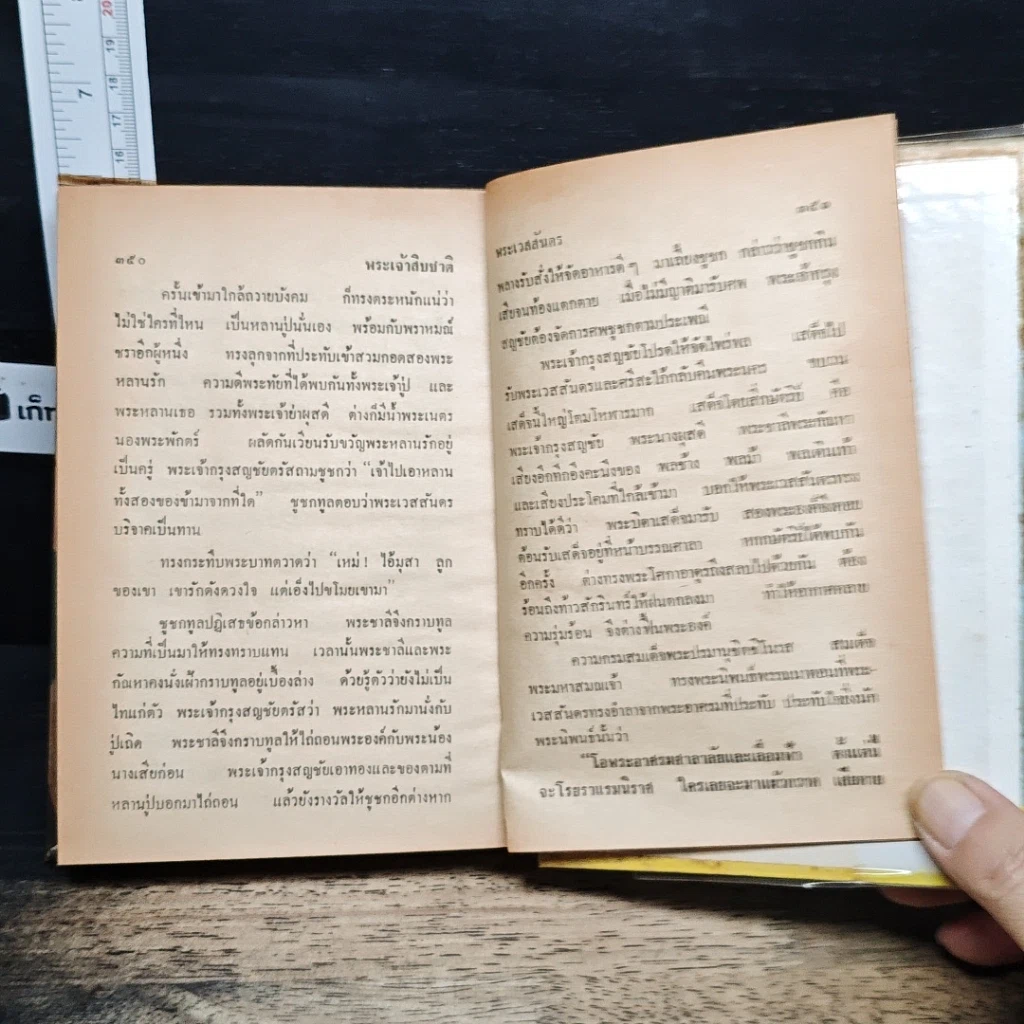 20
19
18
17
16
7
เก็
๓๕๐
พระเจ้าสิบชาติ
ครั้นเข้ามาใกล้ถวายบังคม ก็ทรงตระหนักแน่ว่า
ไม่ใช่ใครที่ไหน เป็นหลานปู่นั่นเอง พร้อมกับพราหมณ์
ชราอีกผู้หนึ่ง ทรงลุกจากที่ประทับเข้าสวมกอดสองพระ
หลานรัก ความดีพระทัยที่ได้พบกันทั้งพระเจ้าปู่ และ
พระหลานเธอ รวมทั้งพระเจ้าย่าผุสดี ต่างก็มีน้ำพระเนตร
นองพระพักตร์ ผลัดกันเวียนรับขวัญพระหลานรักอยู่
เป็นครู่ พระเจ้ากรุงสญชัยตรัสถามชูชกว่า “เจ้าไปเอาหลาน
ทั้งสองของข้ามาจากที่ใด” ชูชกทูลตอบว่าพระเวสสันดร
บริจาคเป็นทาน
ทรงกระทืบพระบาทตวาดว่า “เหม่! ไอ้มุสา ลูก
ของเขา เขารักดังดวงใจ แต่เอ็งไปขโมยเขามา”
ชูชกทูลปฏิเสธข้อกล่าวหา พระชาลีจึงกราบทูล
ความที่เป็นมาให้ทรงทราบแทน เวลานั้นพระชาลีและพระ
กัณหาคงนั่งเฝ้ากราบทูลอยู่เบื้องล่าง ด้วยรู้ตัวว่ายังไม่เป็น
ไทแก่ตัว พระเจ้ากรุงสญชัยตรัสว่า พระหลานรักมานั่งกับ
ปู่เถิด พระชาลีจึงกราบทูลให้ไถ่ถอนพระองค์กับพระน้อง
นางเสียก่อน พระเจ้ากรุงสญชัยเอาทองและของตามที่
หลานปู่บอกมาไถ่ถอน แล้วยังรางวัลให้ชูชกอีกต่างหาก
๓๕๑
พระเวสสันดร
พลางรับสั่งให้จัดอาหารดีๆ มาเลี้ยงชูชก กล่าวว่าชูชกกิน
เสียจนท้องแตกตาย เมื่อไม่มีญาติมารับศพ พระเจ้ากรุง
สญชัยต้องจัดการศพชูชกตามประเพณี
พระเจ้ากรุงสญชัยโปรดให้จัดไพร่พล เสด็จไป
รับพระเวสสันดรและศรีสะใภ้กลับคืนพระนคร ขบวน
เสด็จนี้ใหญ่โตมโหฬารมาก เสด็จโดยสี่กษัตริย์ คือ
พระเจ้ากรุงสญชัย พระนางผุสดี พระชาลีพระกัณหา
เสียงอึกทึกอึงคะนึงของ พลช้าง พลม้า พลเดินเท้า
และเสียงประโคมที่ใกล้เข้ามา บอกให้พระเวสสันดรทรง
ทราบได้ดีว่า พระบิดาเสด็จมารับ สองพระองค์จึงคอย
ต้อนรับเสด็จอยู่ที่หน้าบรรณศาลา หกกษัตริย์ได้พบกัน
อีกครั้ง ต่างทรงพระโศกาอาดูรถึงสลบไปด้วยกัน ต้อง
ร้อนถึงท้าวสักรินทร์ให้ฝนตกลงมา ทำให้อากาศคลาย
ความรุ่มร้อน จึงต่างฟื้นพระองค์
ความกรมสมเด็จพระปรมานุชิตชิโนรส สมเด็จ
พระมหาสมณเจ้า ทรงพระนิพนธ์พรรณนาตอนที่พระ-
เวสสันดรทรงอำลาจากพระอาศรมที่ประทับ ประทับใจยิ่งนัก
พระนิพนธ์นั้นว่า
“โอพระอาศรมศาลาลัยและเลื่อมจ้า
จะโรยราแรมนิราศ ใครเลยจะมาแผ้วกวาด